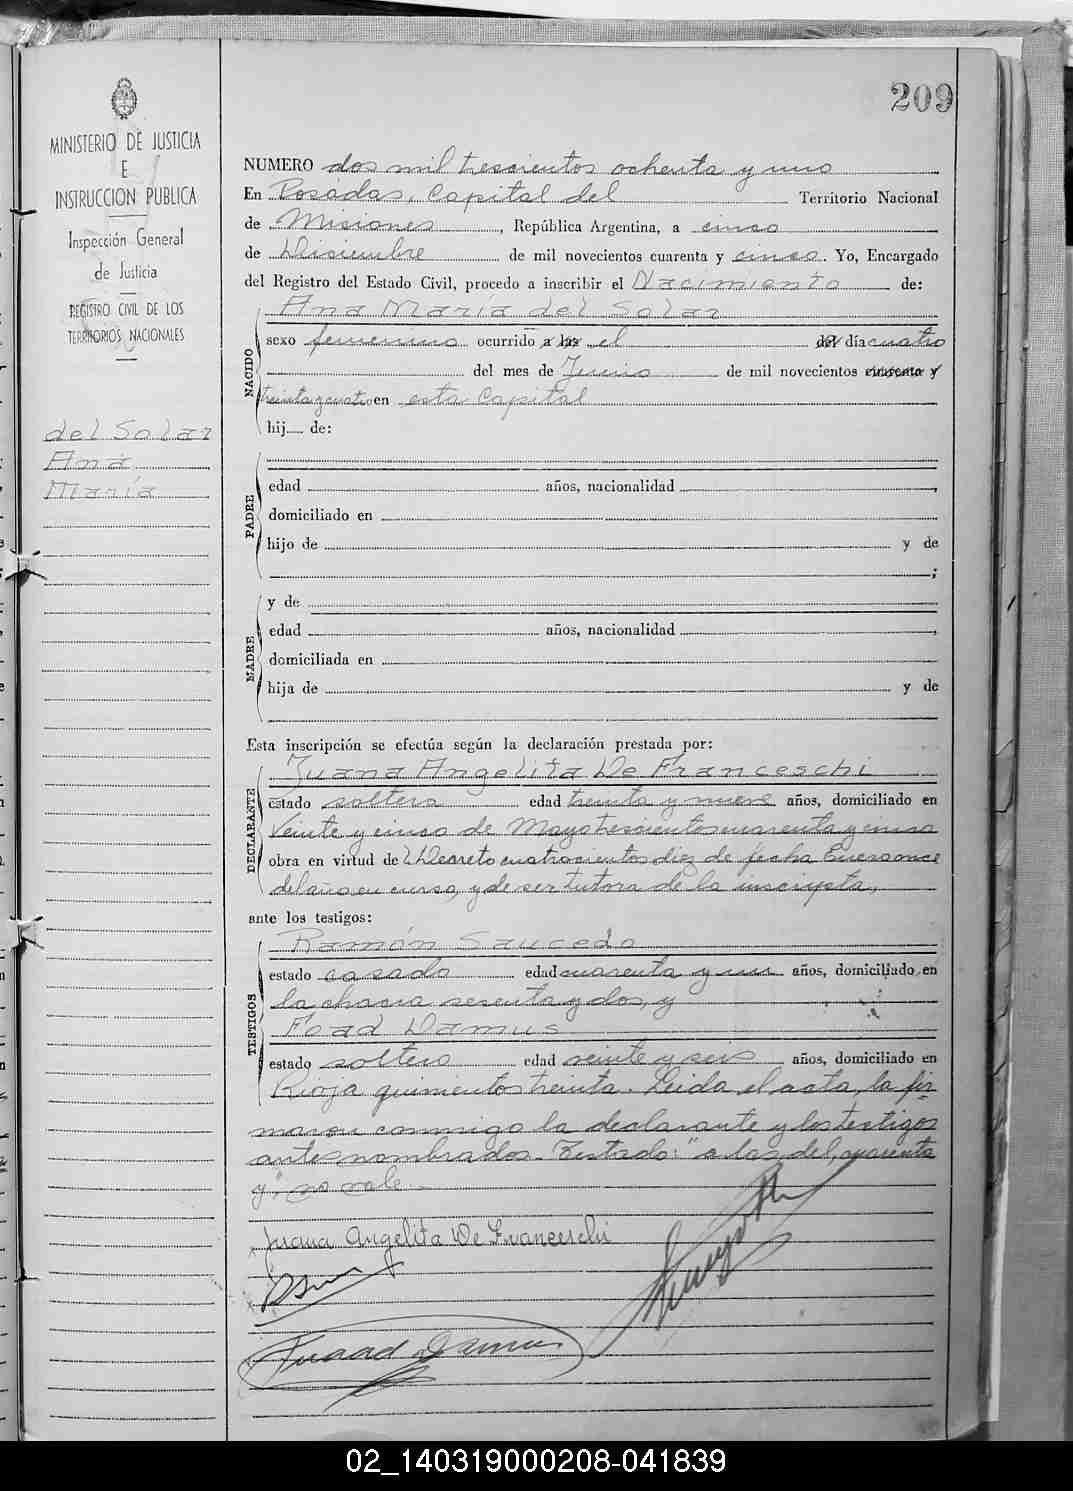 209
MINISTERIO DE JUSTICIA
E
INSTRUCCION PUBLICA
Inspección General
de Justicia
REGISTRO CIVIL DE LOS
TERRITORIOS NACIONALES
del Solar
Ana
María
NUMERO dos mil trescientos ochenta y uno
En Posadas, Capital del Territorio Nacional
de Misiones, República Argentina, a cinco
de Diciembre de mil novecientos cuarenta y cinco. Yo, Encargado
del Registro del Estado Civil, procedo a inscribir el Nacimiento de:
Ana María del Solar
NACIDO
sexo femenino ocurrido a las el del día cuatro
del mes de Junio de mil novecientos cuarenta y
treinta y cuatro en esta Capital
hij de:
PADRE
edad años, nacionalidad ,
domiciliado en
hijo de y de
;
MADRE
y de
edad años, nacionalidad ,
domiciliada en
hija de y de
Esta inscripción se efectúa según la declaración prestada por:
DECLARANTE
Juana Angelita De Franceschi
estado soltera edad treinta y nueve años, domiciliado en
Veinte y cinco de Mayo trescientos cuarenta y cinco
obra en virtud de Decreto cuatrocientos diez de fecha Enero once
del año en curso, y de ser tutora de la inscripta,
ante los testigos:
TESTIGOS
Ramón Saucedo
estado casado edad cuarenta y un años, domiciliado en
la chacra sesenta y dos, y
Foad Damus
estado soltero edad veinte y seis años, domiciliado en
Rioja quinientos treinta. Leida el acta, la fir-
maron conmigo la declarante y los testigos
antes nombrados. Testado: "a las, del, cuarenta
y" no vale.
Juana Angelita De Franceschi
Fuaad Damus
02_140319000208-041839